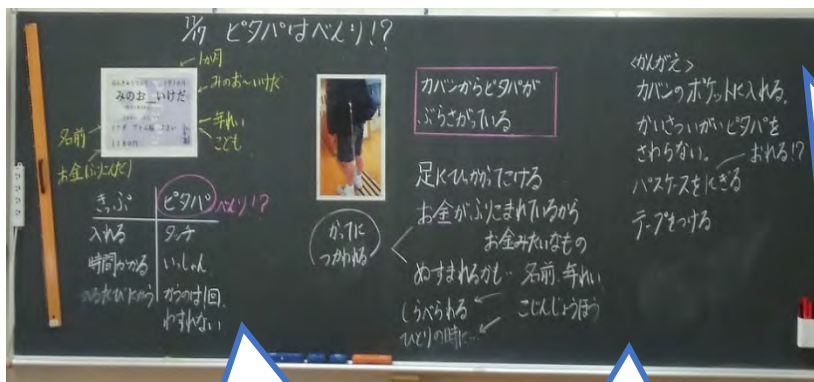 11/17 ピタパはべんり!?
1か月
みのお〜いけだ
みのお いけだ
年れい
こども
名前
お金(ふりこんだり)
きっぷ ピタパ べんり!?
入れる タッチ
時間かかる いっしゅん
のるたびにかう かうのは1回
わすれない
かってに
つかわれる
カバンからピタパが
ぶらさがっている
足にひっかかってこける
お金がふりこまれているから
お金みたいなもの
ぬすまれるかも… 名前、年れい
しらべられる こじんじょうほう
ひとりの時に…
<かんがえ>
カバンのポケットに入れる。
かいさついがいピタパを
さわらない。 おれる!?
パスケースをにぎる
テープをつける